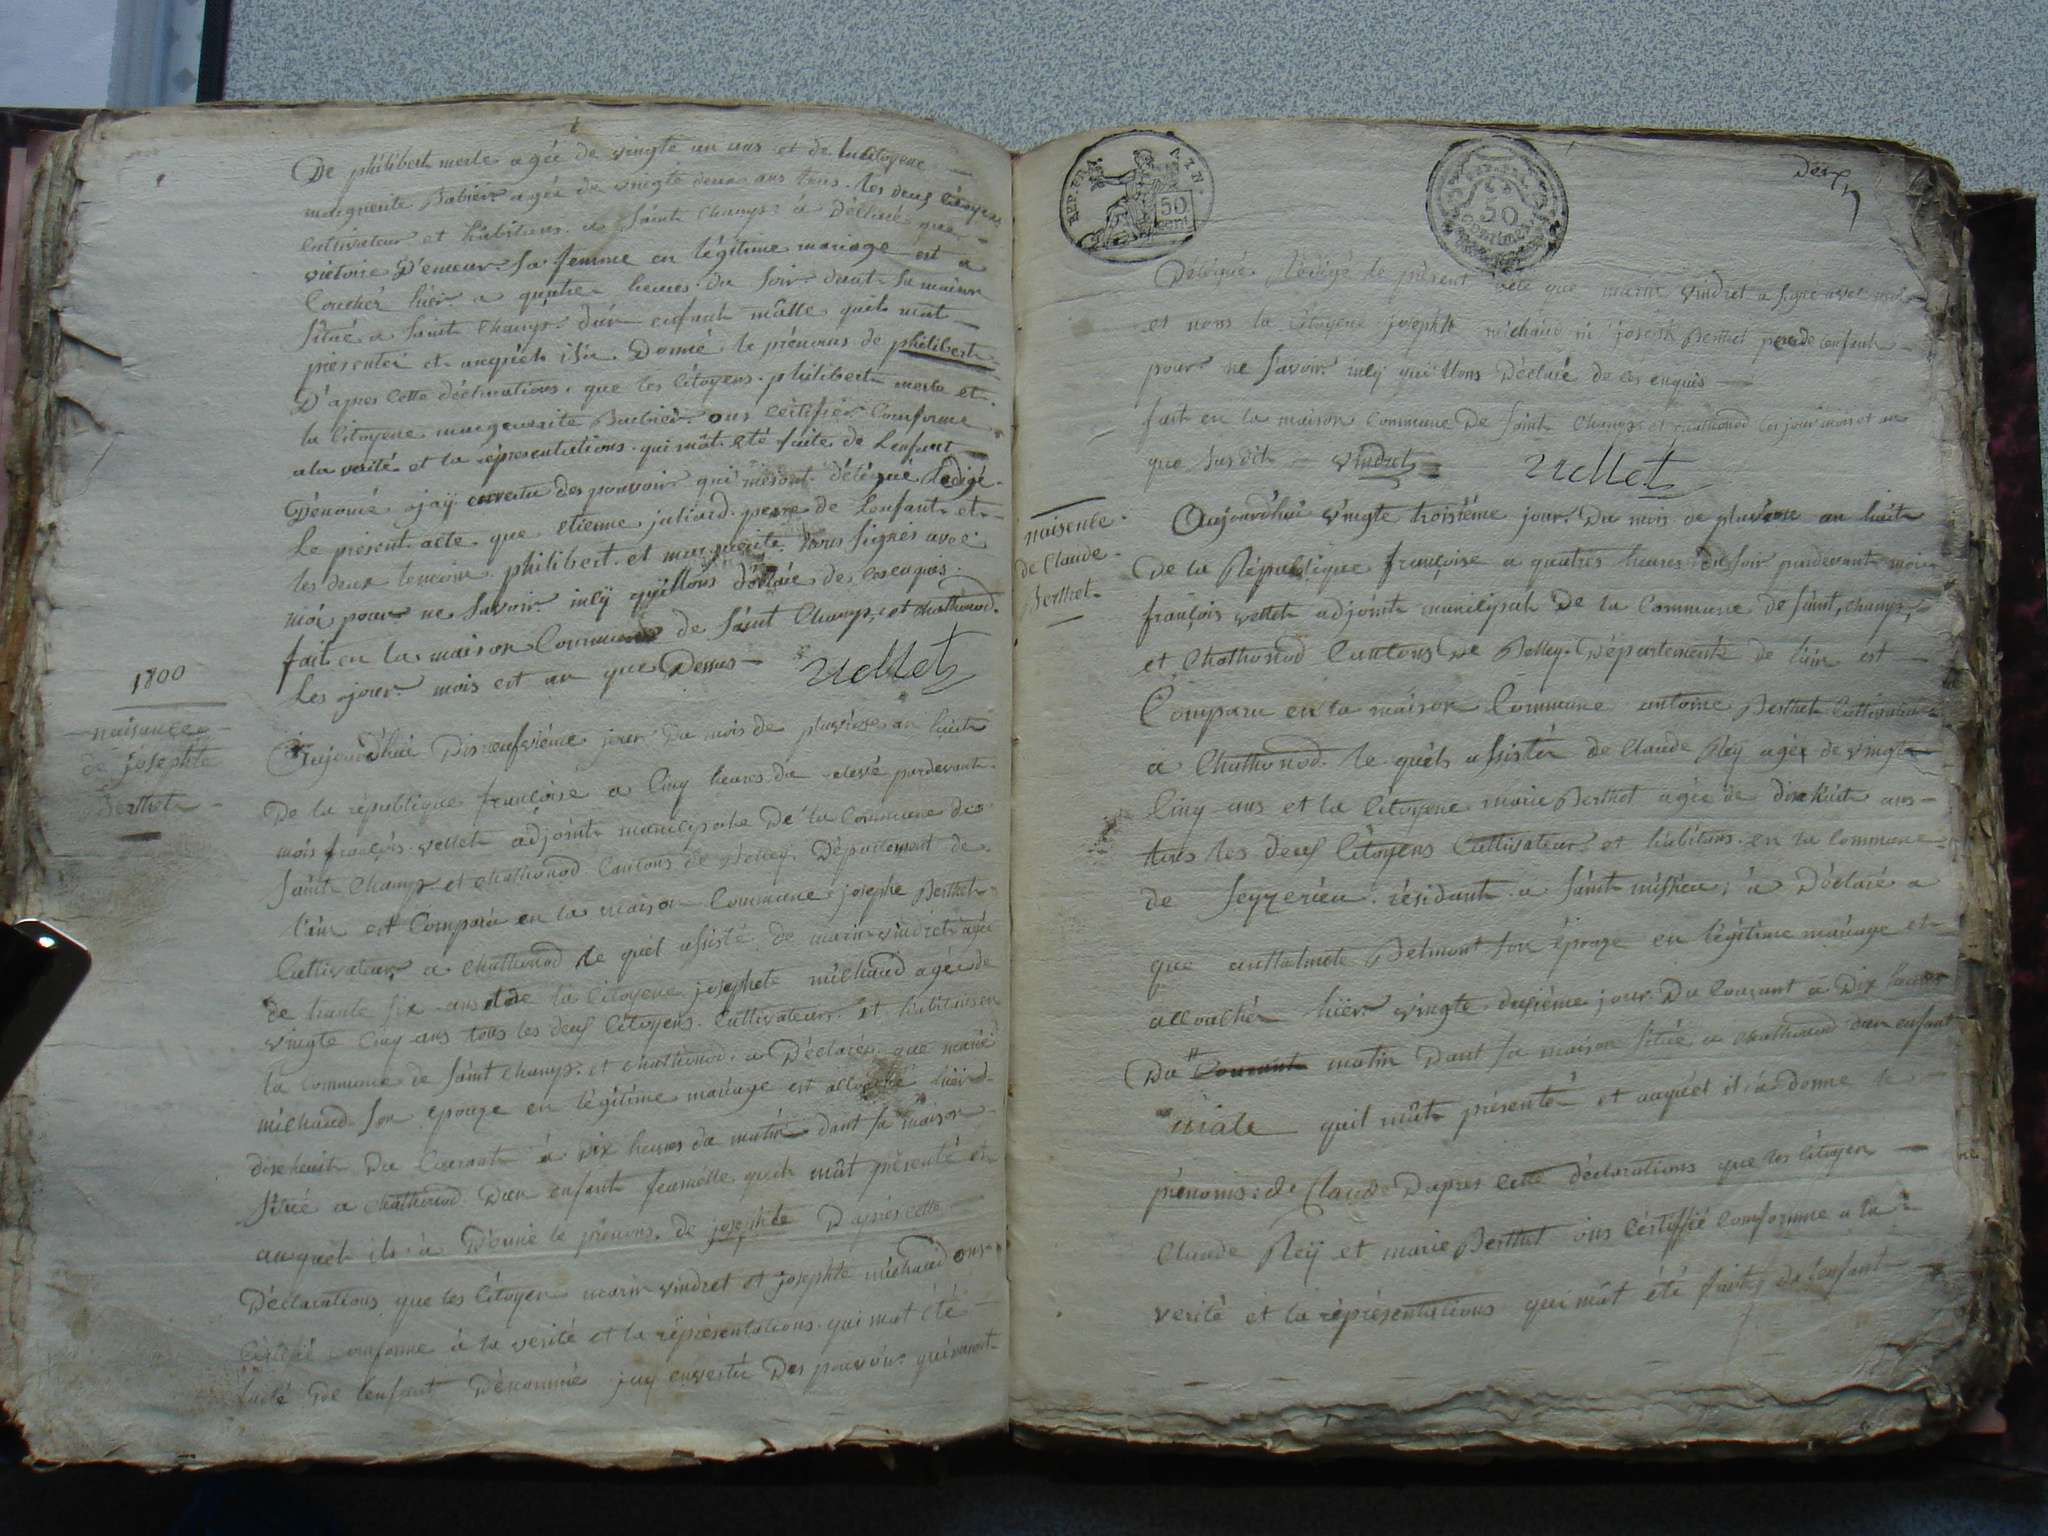 De philibert merle agée de vingte un ans et de la Citoyene
marguerite Babier agée de vingte deux ans tous les deux Citoyens
Cultivateur et habitans a Saint Champs à Déclaré que
victoire D'emeur Sa femme en légitime mariage est a
Couchée hier a quatre heures du Soir dant Sa maison
Situé a Saint Champs d'un enfant mâlle quil mât
présenté et auquel il a Donné le prénoms de philibert
D'apres Cette déclarations que les Citoyens philibert merle et
la Citoyene marguerite Barbier ons Certifier Conforme
a la verité et la représentations qui mât été faite de Lenfant
Dénomé jay envertu des pouvoir qui mesont délégué Rédigé
Le présent acte que etienne juliard perre de Lenfant et
les deux temoins philibert et marguerite nons Signés avec
moi pour ne Savoir incy quillons déclaré de ces enquis
fait en la maison Commune de Saint Champs et chathonod
Les jour mois est an que Dessus vellet
1800
naisance
de josephte
Berthet
Aujourdhui Disneufvième jour Du mois de pluviose an huite
De la république françoise a Cinq heures du elevé pardevant
mois françois vellet adjoint municipale De la Commune de
Saint Champs et chathonod Cantons de Belley Département de
l'ain est Comparu en la maison Commune josephe Berthet
Cultivateur a Chathonod le quel assisté de marin vindret agée
de trante six ans et de la Citoyene josephte michaud agée de
vingte Cinq ans tous les deuf Citoyens Cultivateur et habitans en
la Commune de Saint Champs et chathonod a Déclarée que marie
michaud Son epouze en légitime mariage est accouché hiier
dixehuit Du Courant à dix heures du matin dant Sa maison
Situé a Chathonod D'un enfant feumelle quil mât présenté et
auquel ils a Donné le prénoms de josephte D'après cette
Déclarations que les Citoyen marin vindret et josephte michaud ons
Certifié Conforme à la verité et la représentations qui mât été
faite De lenfant Dénommé jay envertu Des pouvoir qui mesont
REP. FRA.
50
cent.
50
Centimes
Délégué Rédigé le présent acte que marin vindret a Signé avec moi
et nons la Citoyene josephte michaud ni joseph Berthet pere de lenfant
pour ne Savoir incy quillons Déclaré de ces enquis
fait en la maison Commune De Saint Champs et chathonod les jour mois et an
que Susdit vindret vellet
naisence
de Claude
Berthet
Aujourdhui vingte troisième jour Du mois de pluviose an huite
De la République françoise a quatres heures du Soir pardevant moi
françois vellet adjoint municipal De la Commune de Saint Champs
et Chathonod Cantons De Belley Département de l'ain est
Comparu en la maison Commune antoine Berthet Cultivateur
a Chathonod le quels assister de Claude Reÿ agée de vingte
Cinq ans et la Citoyene marie Berthet agée de dixhuite ans
tous les deuf Citoyens Cultivateur et habitans en la Commune
de Seyzerieu résidant a Saint missieu à Déclaré a
que anthelmete Belmont Son épouze en légitime mariage et
accouchée hiier vingte deusieme jour Du Courant a Dix heures
Du Courant matin Dant Sa maison Située a chathonod d'un enfant
mâle quil mât présenté et auquel il a donné le
prénoms de Claude D'apres Cette déclarations que les Citoyen
Claude Reÿ et marie Berthet ons Certiffié Comformme a la
verité et la représentations qui mât été faite de lenfant